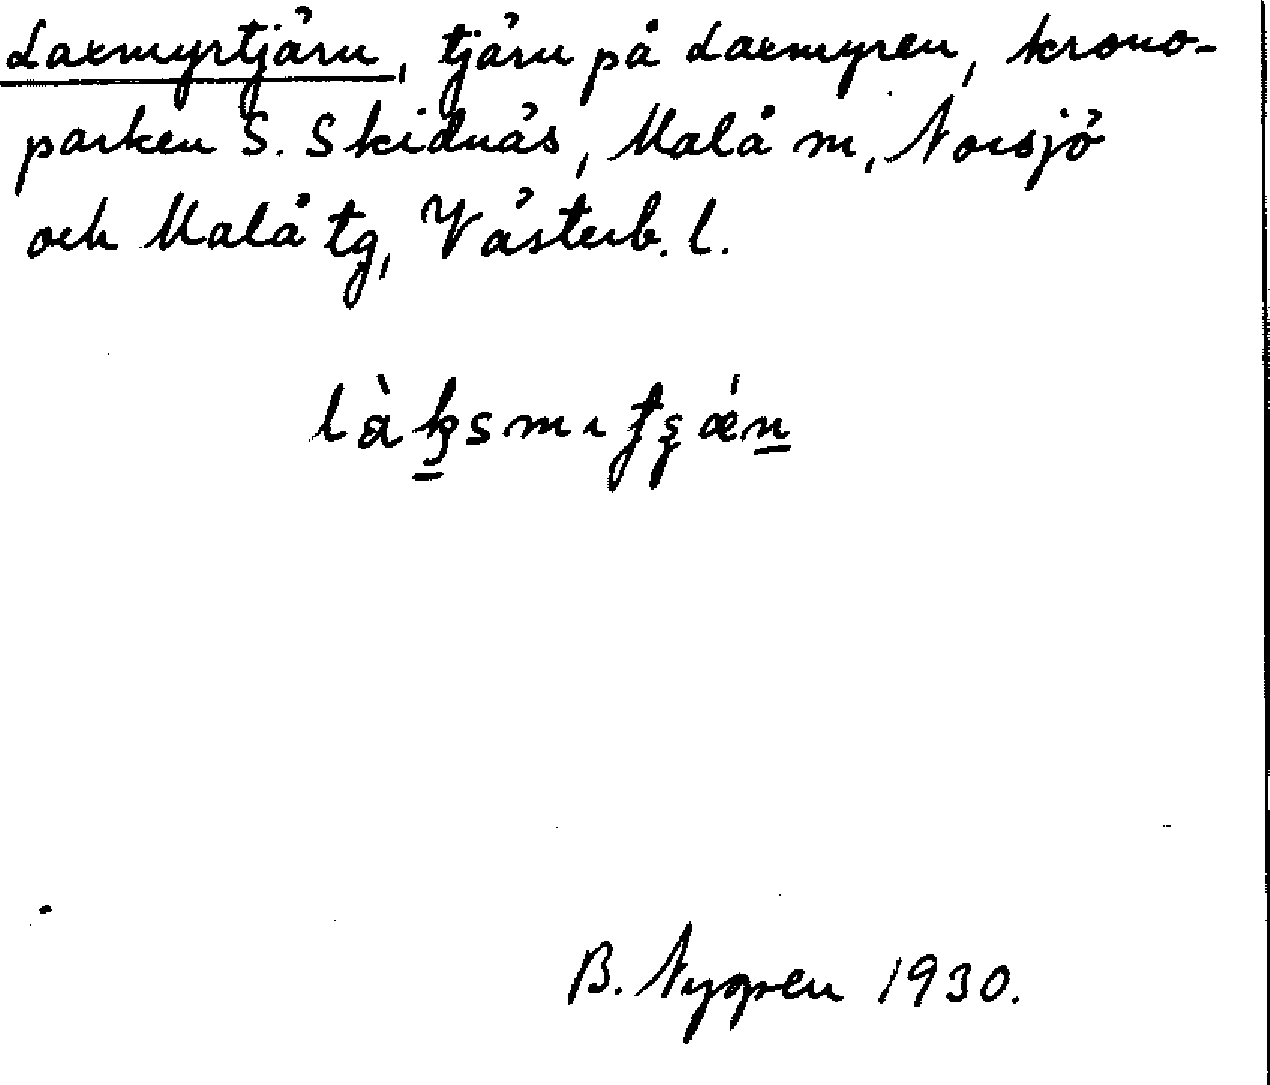 Laxmyrtjärn, tjärn på Laxmyren, krono-
parken S. Skidnäs, Malå sn, Norsjö
och Malå tg, Västerb. l.
B. Nygren 1930.